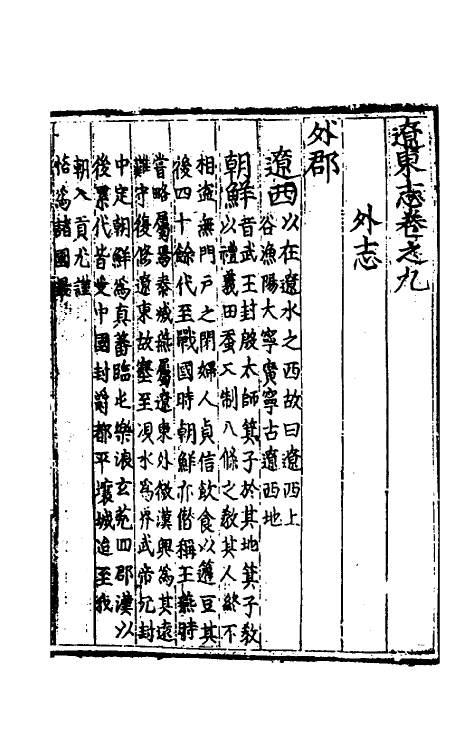 遼東志卷之九
外志
外郡
遼西以在遼水之西故曰遼西上
谷漁陽大寧廣寧古遼西地
朝鮮昔武王封殷太師箕子於其地箕子教
以禮義田蚕工制八條之教其人終不
相盗無門戶之閉婦人貞信飲食以籩豆其
後四十餘代至戰國時朝鮮亦僭稱王燕時
嘗略屬焉秦滅燕屬遼東外徼漢興為其遠
難守復修遼東故塞至浿水為界武帝元封
中定朝鮮為真蕃臨屯樂浪玄菟四郡漢以
後累代皆受中國封爵都平壤城迨至我
朝入貢尤謹
恪為諸國最